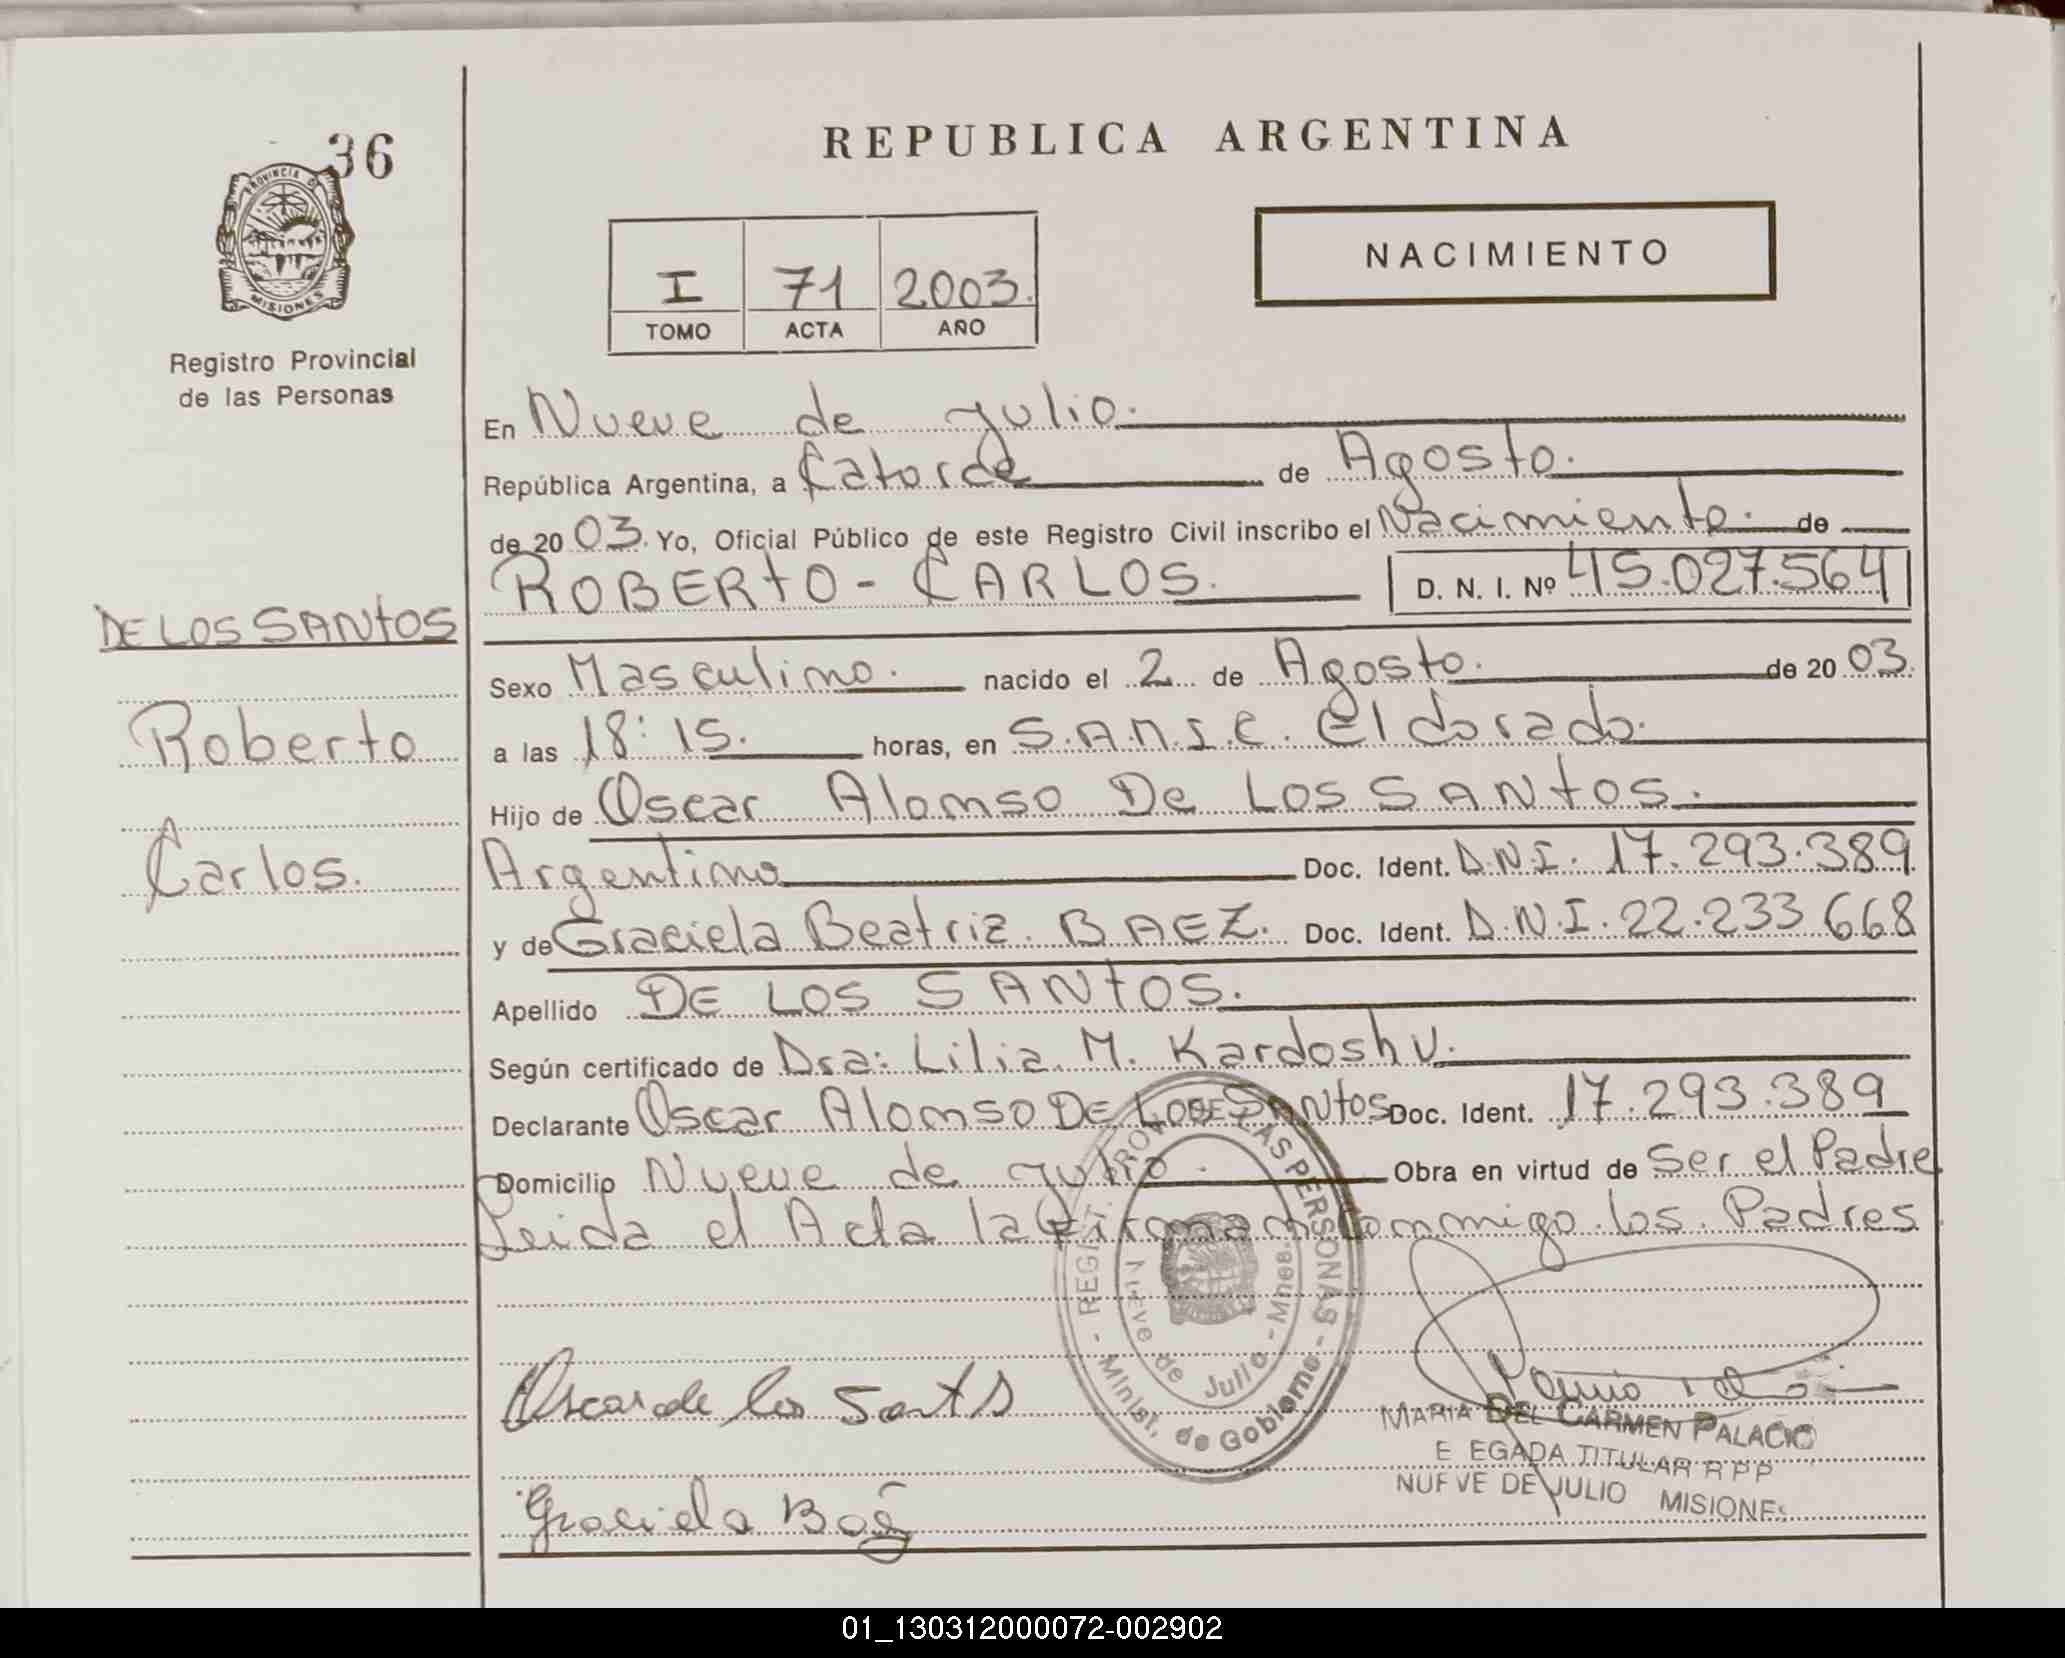 36
PROVINCIA D
MISIONES
Registro Provincial
de las Personas
REPUBLICA ARGENTINA
I 71 2003.
TOMO ACTA AÑO
NACIMIENTO
En Nueve de Julio.
República Argentina, a Catorce de Agosto.
de 2003. Yo, Oficial Público de este Registro Civil inscribo el Nacimiento. de
ROBERTO - CARLOS. D. N. I. Nº 45.027.564
DE LOS SANTOS
Roberto
Carlos.
Sexo Masculino. nacido el 2 de Agosto. de 2003.
a las 18:15. horas, en S.A.M.I.C. Eldorado.
Hijo de Oscar Alonso De Los SANTOS.
Argentino Doc. Ident. D.N.I. 17.293.389.
y de Graciela Beatriz BAEZ. Doc. Ident. D.N.I. 22.233.668
Apellido DE LOS SANTOS.
Según certificado de Dra: Lilia M. Kardoshv.
Declarante Oscar Alonso DE LOS SANTOS Doc. Ident. 17.293.389
Domicilio Nueve de Julio. Obra en virtud de Ser el Padre
Leida el Acta la Firman Conmigo los Padres
- REGIST. PROV. DE LAS PERSONAS -
Minist. de Gobierno
Nueve de Julio - Mnes.
Oscar de los Santos
MARIA DEL CARMEN PALACIO
E EGADA TITULAR R P P
NUEVE DE JULIO MISIONES
Graciela Baé
01_130312000072-002902